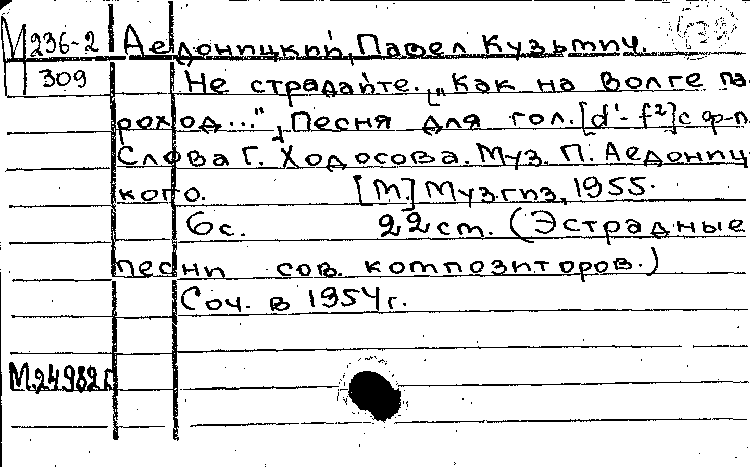 М 236-2 Аедоницкий, Павел Кузьмич.
309 Не страдайте. ["Как на Волге па-
роход..."] Песня для гол. [d'-f²] с ф-п.
Слова Г. Ходосова. Муз. П. Аедониц-
кого. [М.] Музгиз, 1955.
6 с. 22 см. (Эстрадные
песни сов. композиторов.)
Соч. в 1954 г.
М.24982г.